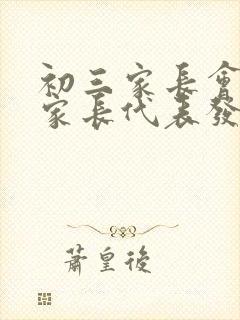 初三家長會
家長代表發
蕭皇後